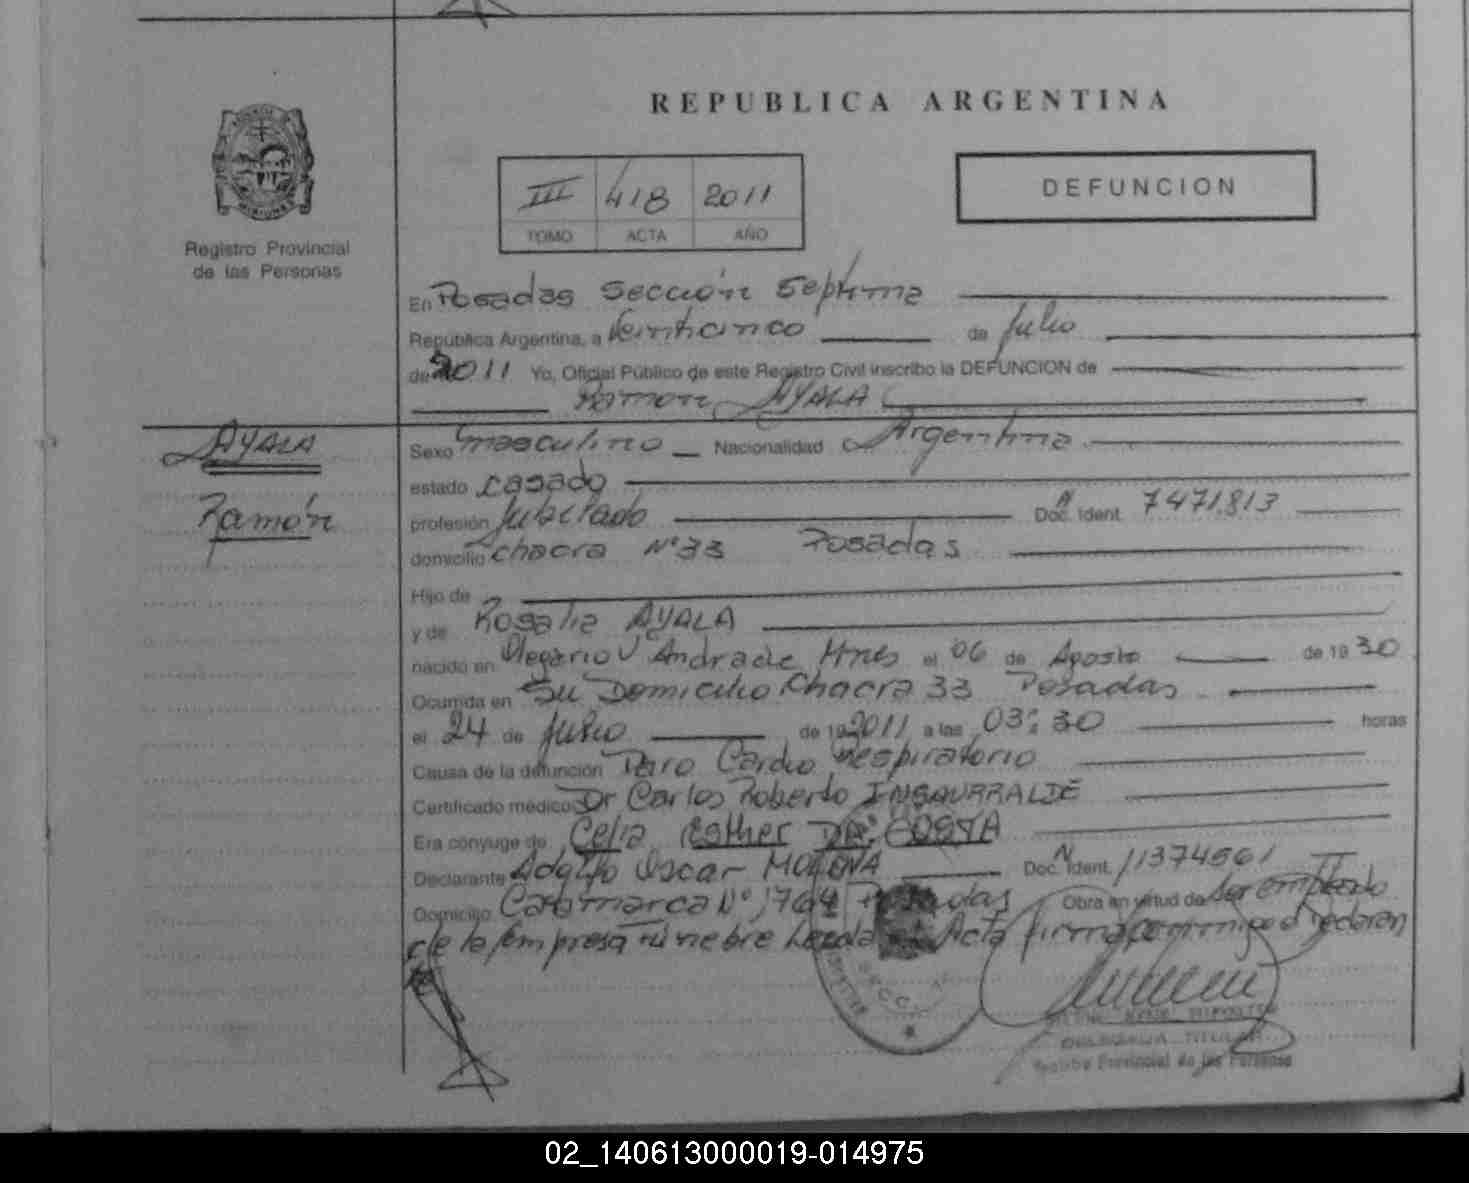 REPUBLICA ARGENTINA
III 418 2011
TOMO ACTA AÑO
DEFUNCION
Registro Provincial
de las Personas
En Posadas Sección Septima
República Argentina, a Veinticinco de Julio
de 2011 Yo, Oficial Público de este Registro Civil inscribo la DEFUNCION de
Ramon AYALA
AYALA
Ramón
Sexo masculino Nacionalidad Argentina
estado casado
profesión Jubilado Doc. Ident. 7471.813
domicilio chacra Nº 33 Posadas
Hijo de
y de Rosalia AYALA
nacido en Olegario V Andrade Mnes el 06 de Agosto de 19 30
Ocurrida en Su Domicilio Chacra 33 Posadas
el 24 de Julio de 19 2011 a las 03:30 horas
Causa de la defunción Paro Cardio Respiratorio
Certificado médico Dr Carlos Roberto INSAURRALDE
Era cónyuge de Celia Esther DA COSTA
Declarante Adolfo Oscar MOLINA Doc. Ident. 11374561
Domicilio Catamarca Nº 1764 Posadas Obra en virtud de Ser empleado
de la Empresa Fúnebre Leida el Acta firma conmigo el declaran
DELEGADA TITULAR
Registro Provincial de las Personas
02_140613000019-014975